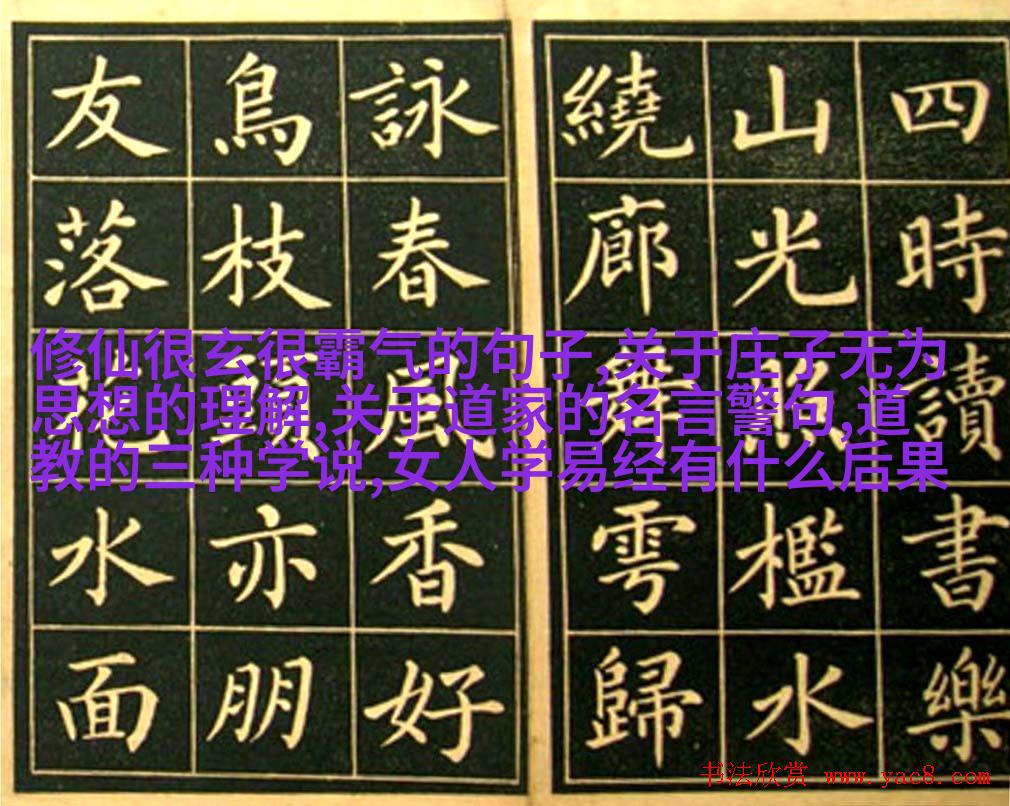 四時讀書樂
山光照檻水
繞廊舞雩歸
詠春風香好
鳥枝頭亦朋
友落花水面
修仙很玄很霸气的句子,关于庄子无为
思想的理解,关于道家的名言警句,道
教的三种学说,女人学易经有什么后果
书法欣赏 www.yac8.com